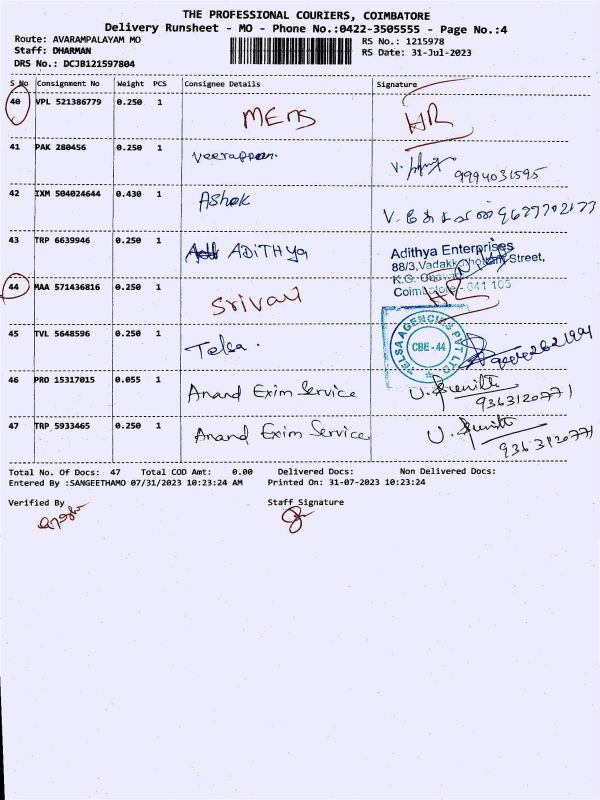 THE PROFESSIONAL COURIERS, COIMBATORE
Delivery Runsheet - MO - Phone No.:0422-3505555 - Page No.:4
Route: AVARAMPALAYAM MO RS No.: 1215978
Staff: DHARMAN RS Date: 31-Jul-2023
DRS No.: DCJB121597804
S No Consignment No Weight PCS Consignee Details Signature
40 VPL 521386779 0.250 1 MEMS HR
41 PAK 280456 0.250 1 Veerappan. V. 9994031595
42 IXM 504024644 0.430 1 Ashok
43 TRP 6639946 0.250 1 ADITHYA Adithya Enterprises
88/3, Street,
K.G.
Coimbatore - 641 105
44 MAA 571436816 0.250 1 Srivari HR
45 TVL 5648596 0.250 1 Telsa. TELSA AGENCIES PVT LTD CBE - 44
46 PRO 15317015 0.055 1 Anand Exim Service 9363120771
47 TRP 5933465 0.250 1 Anand Exim Service 9363120771
Total No. Of Docs: 47 Total COD Amt: 0.00 Delivered Docs: Non Delivered Docs:
Entered By :SANGEETHAMO 07/31/2023 10:23:24 AM Printed On: 31-07-2023 10:23:24
Verified By Staff Signature